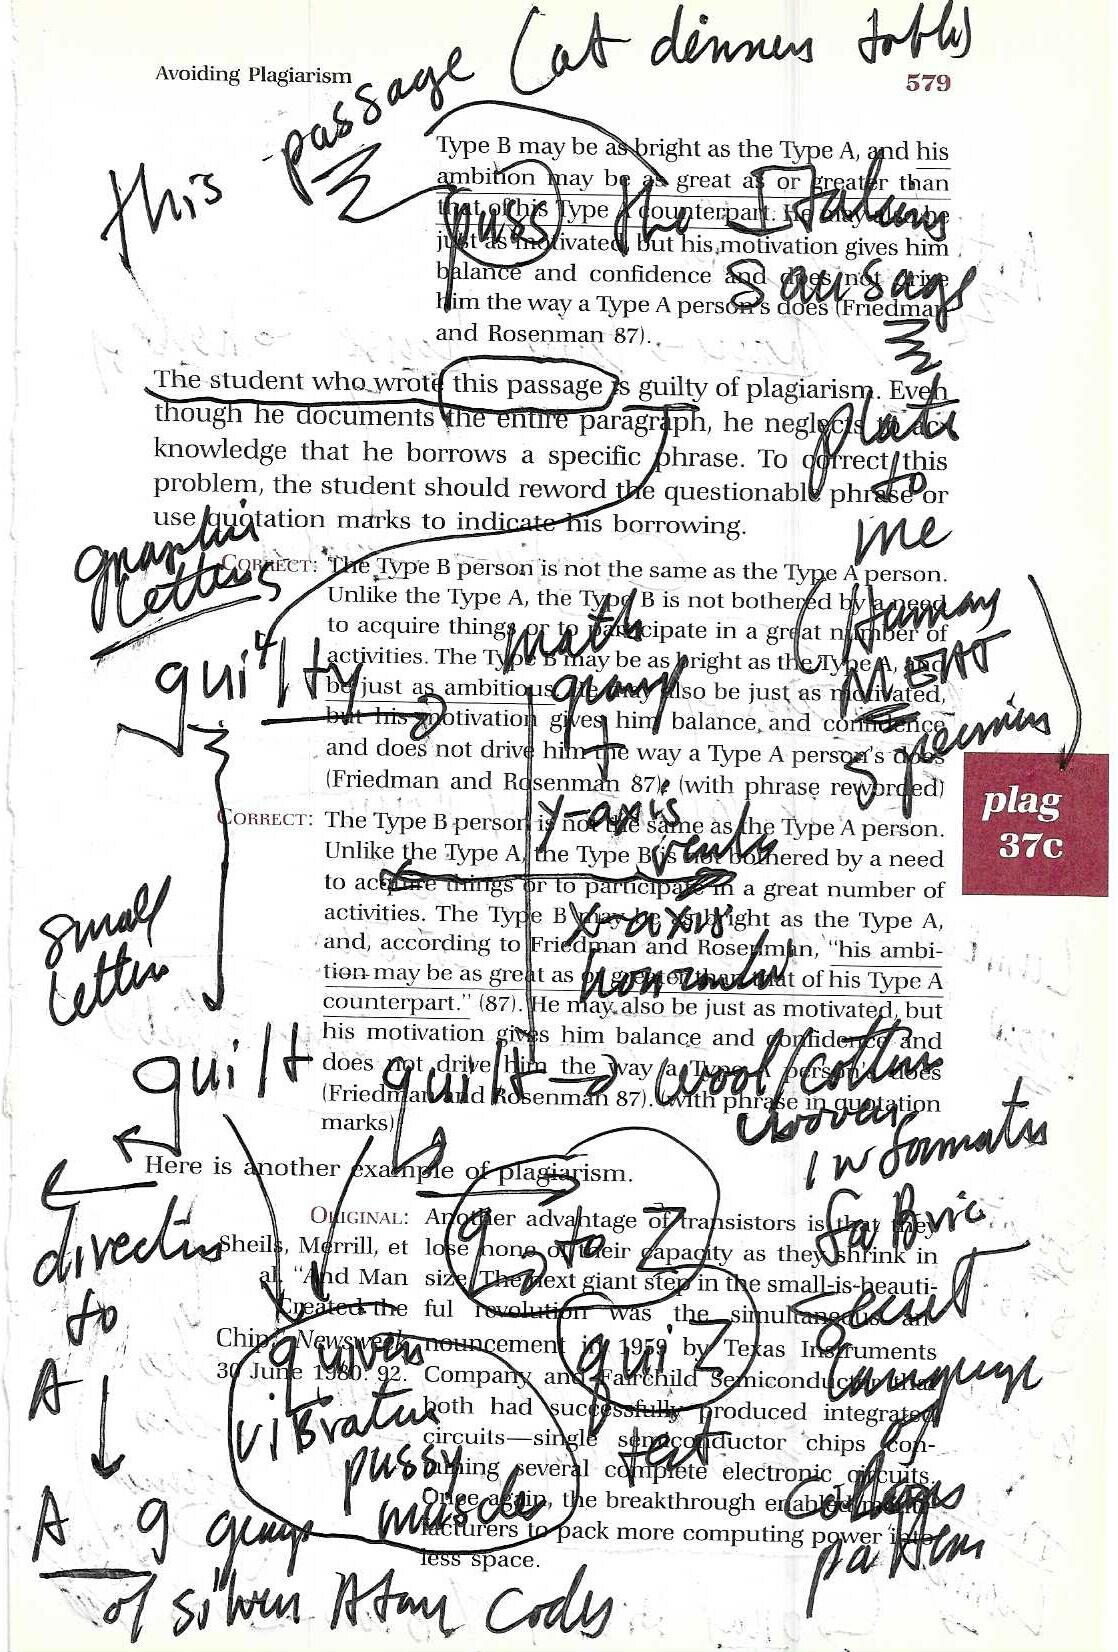 this passage (at dinner table)
Avoiding Plagiarism
579
Type B may be as bright as the Type A, and his
ambition may be as great as or greater than
that of his Type A counterpart. He may also be
just as motivated, but his motivation gives him
balance and confidence and does not drive
him the way a Type A person's does (Friedman
and Rosenman 87).
pass the Italian
sausage
plate
to
me
(Human
MEAT
specimins)
The student who wrote this passage is guilty of plagiarism. Even
though he documents the entire paragraph, he neglects to ac-
knowledge that he borrows a specific phrase. To correct this
problem, the student should reword the questionable phrase or
use quotation marks to indicate his borrowing.
graphic
letters
CORRECT: The Type B person is not the same as the Type A person.
Unlike the Type A, the Type B is not bothered by a need
to acquire things or to participate in a great number of
activities. The Type B may be as bright as the Type A, and
be just as ambitious. He may also be just as motivated,
but his motivation gives him balance and confidence
and does not drive him the way a Type A person's does
(Friedman and Rosenman 87). (with phrase reworded)
guilty
math
graph
y-axis
x-axis
plag
37c
CORRECT: The Type B person is not the same as the Type A person.
Unlike the Type A, the Type B is not bothered by a need
to acquire things or to participate in a great number of
activities. The Type B may be as bright as the Type A,
and, according to Friedman and Rosenman, "his ambi-
tion may be as great as or greater than that of his Type A
counterpart." (87). He may also be just as motivated, but
his motivation gives him balance and confidence and
does not drive him the way a Type A person's does
(Friedman and Rosenman 87). (with phrase in quotation
marks)
small
letter
guilt quilt wool/cotton
woven
Here is another example of plagiarism.
directin
to
A
A
q to Z
quiZ
test
faBric
secret
language
of
pattern
ORIGINAL: Another advantage of transistors is that they
Sheils, Merrill, et lose none of their capacity as they shrink in
al. "And Man size. The next giant step in the small-is-beauti-
Created the ful revolution was the simultaneous an-
Chip." Newsweek nouncement in 1959 by Texas Instruments
30 June 1980: 92. Company and Fairchild Semiconductor that
both had successfully produced integrated
circuits—single semiconductor chips con-
taining several complete electronic circuits.
Once again, the breakthrough enabled manu-
facturers to pack more computing power into
less space.
quiver
viBratin
pussy
muscle
of silver Atom Codes